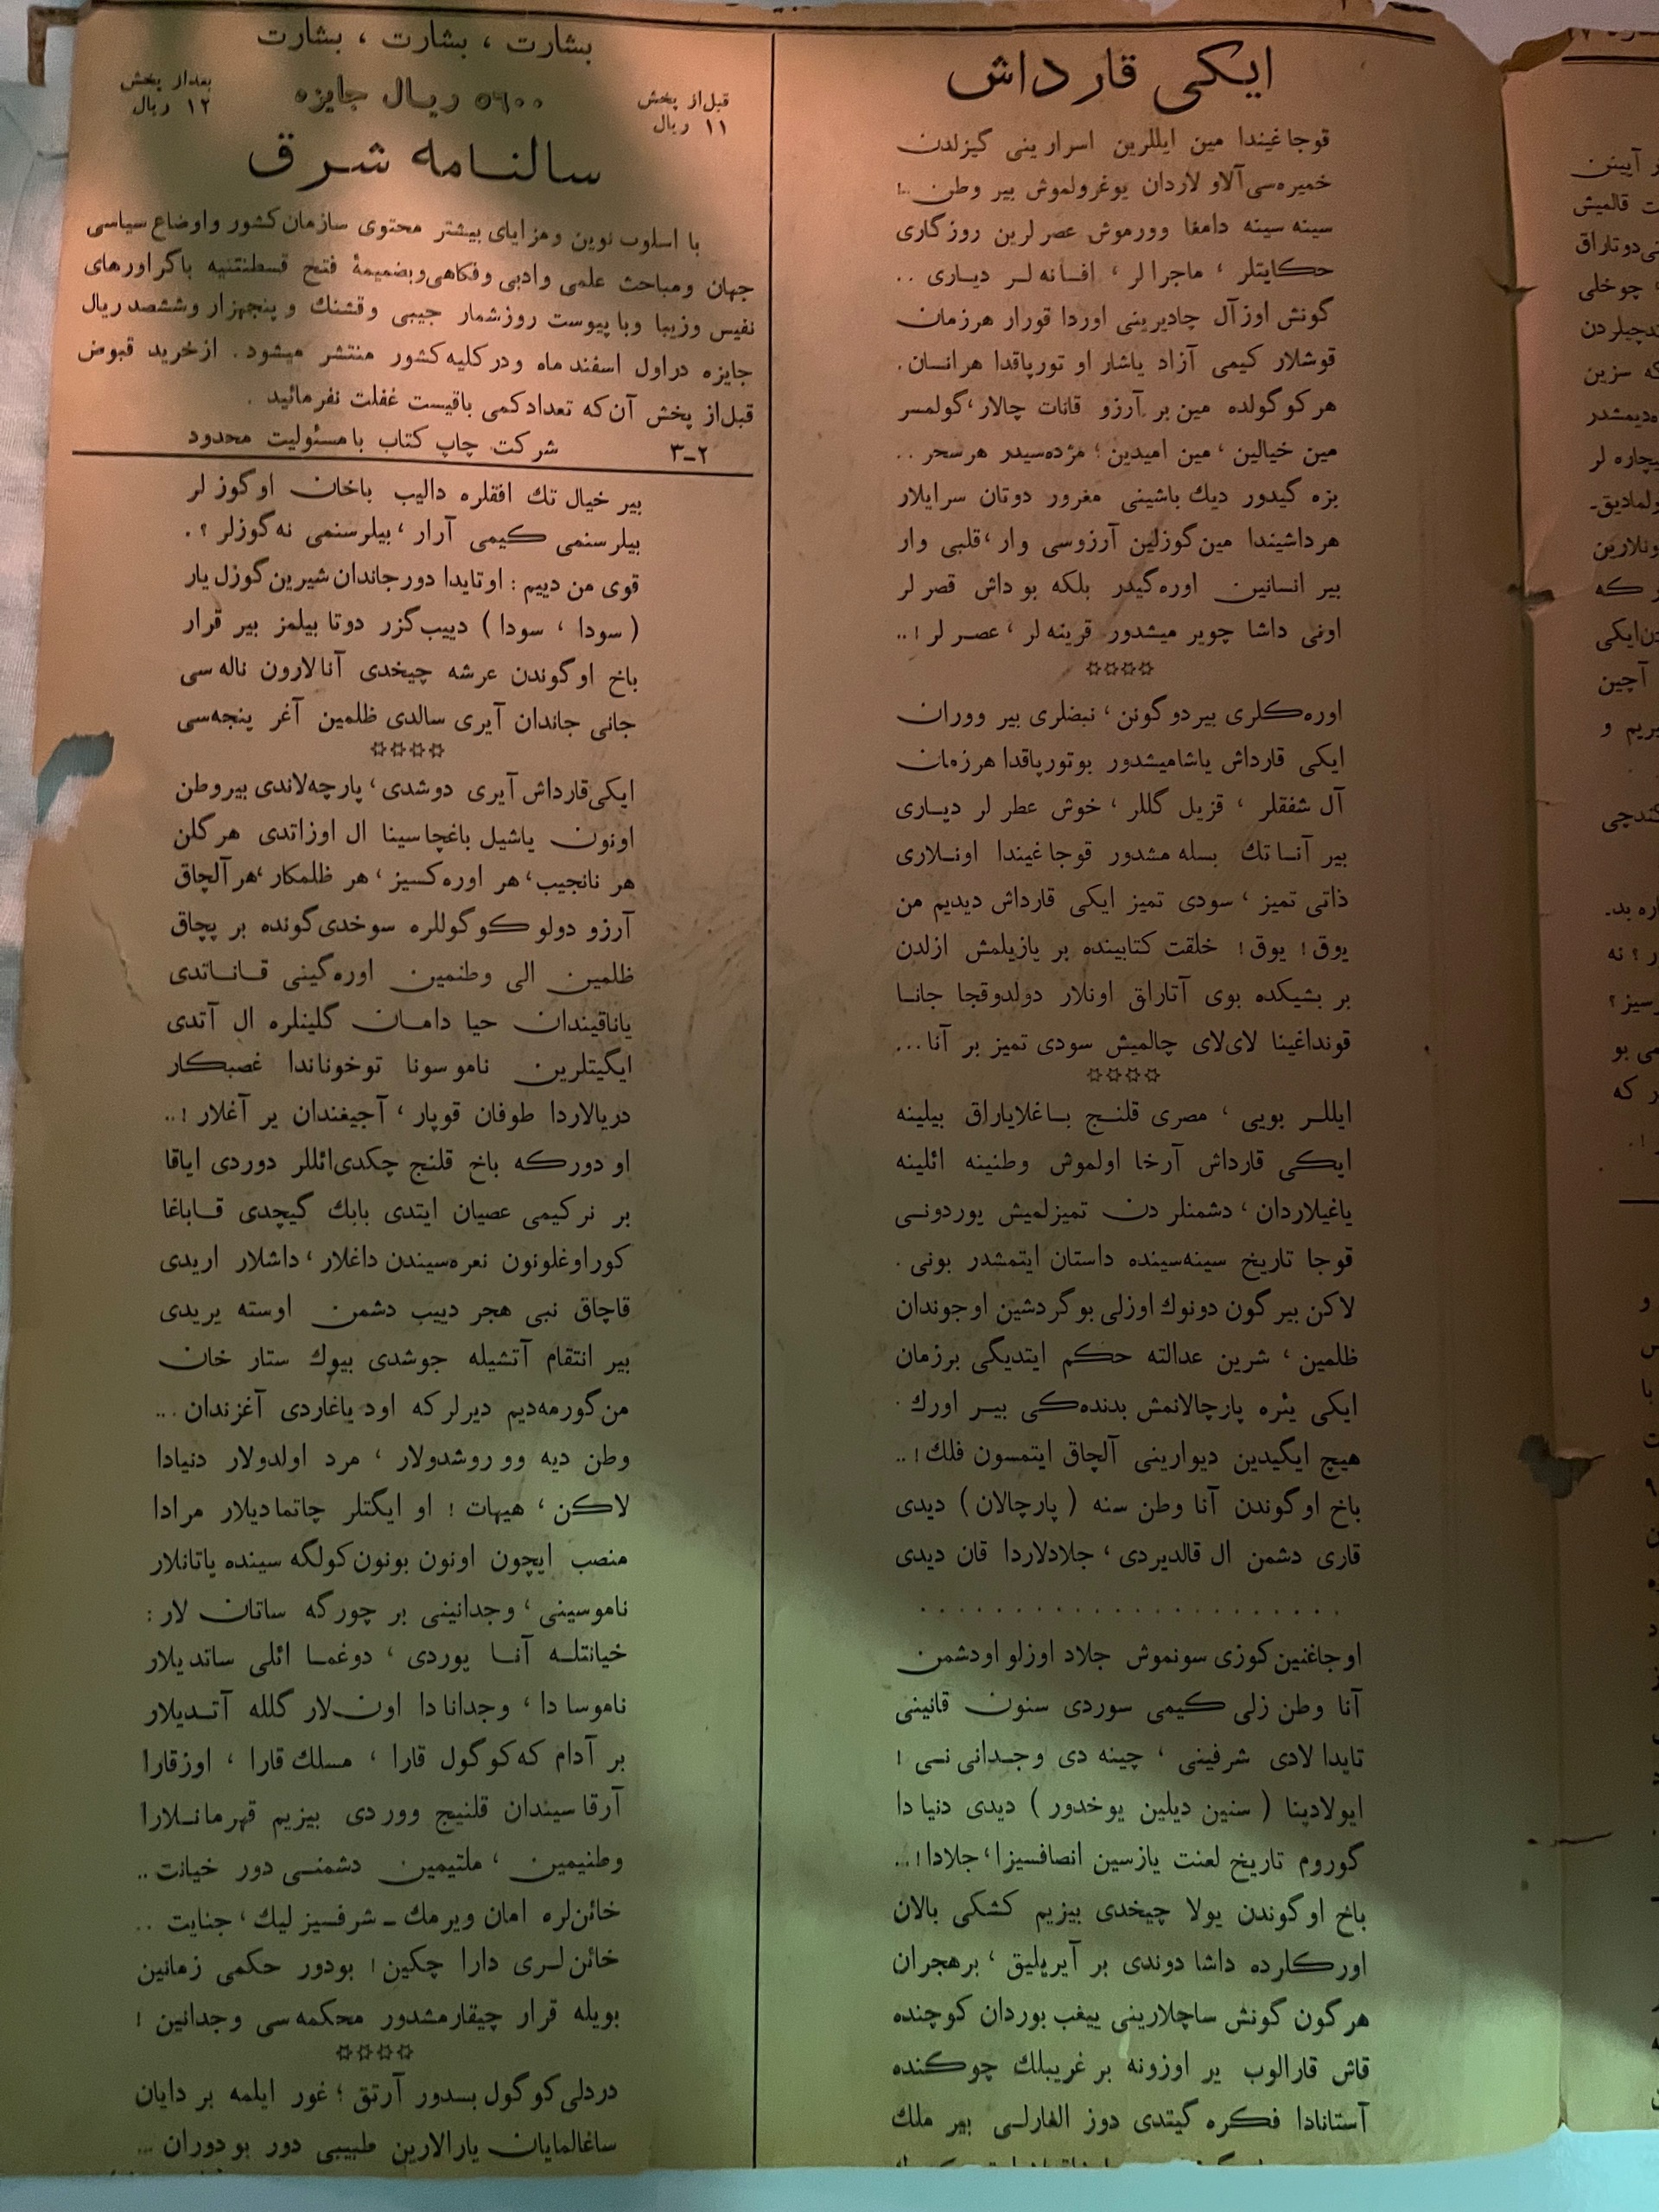 ایکی قارداش
قوجاغیندا مین ایللرین اسرارینی گیزلدن
خمیره‌سی آلاولاردان یوغرولموش بیر وطن ..!
سینه سینه دامغا وورموش عصرلرین روزگاری
حکایتلر ، ماجرالر ، افسانه لر دیاری ..
گونش اوز آل چادیرینی اوردا قورار هرزمان
قوشلار کیمی آزاد یاشار او تورپاقدا هرانسان.
هر کوگولده مین بر آرزو قانات چالار، گولمسر
مین خیالین ، مین امیدین ؛ مژده‌سیدر هرسحر ..
بزه گیدور دیك باشینی مغرور دوتان سرایلار
هرداشیندا مین گوزلین آرزوسی وار ، قلبی وار
بیر انسانین اوره‌گیدر بلکه بو داش قصر لر
اونی داشا چویر میشدور قرینه لر ، عصر لر !..
✩✩✩✩
اوره‌کلری بیر دوگونن ، نبضلری بیر ووران
ایکی قارداش یاشامیشدور بوتورپاقدا هرزمان
آل شفقلر ، قزیل گللر ، خوش عطر لر دیاری
بیر آنا تك بسله مشدور قوجاغیندا اونلاری
ذاتی تمیز ، سودی تمیز ایکی قارداش دیدیم من
یوق ! یوق ! خلقت کتابینده بر یازیلمش ازلدن
بر بشیکده بوی آتاراق اونلار دولدوقجا جانا
قونداغینا لای‌لای چالمیش سودی تمیز بر آنا...
✩✩✩✩
ایللر بویی ، مصری قلنج باغلایاراق بیلینه
ایکی قارداش آرخا اولموش وطنینه ائلینه
یاغیلاردان ، دشمنلر دن تمیزلمیش یوردونی
قوجا تاریخ سینه‌سینده داستان ایتمشدر بونی .
لاکن بیر گون دونوك اوزلی بو گردشین اوجوندان
ظلمین ، شرین عدالته حکم ایتدیگی برزمان
ایکی یئره پارچالانمش بدنده‌کی بیر اورك .
هیچ ایگیدین دیوارینی آلچاق ایتمسون فلك !..
باخ اوگوندن آنا وطن سنه ( پارچالان ) دیدی
قاری دشمن ال قالدیردی ، جلادلاردا قان دیدی
. . . . . . . . . . . . . . . . . . . .
اوجاغنین کوزی سونموش جلاد اوزلو اودشمن
آنا وطن زلی کیمی سوردی سنون قانینی
تایدا لادی شرفینی ، چینه دی وجدانی نی !
ایولادینا ( سنین دیلین یوخدور ) دیدی دنیا دا
گوروم تاریخ لعنت یازسین انصافسیزا ، جلادا !..
باخ اوگوندن یولا چیخدی بیزیم کشکی بالان
اورکلرده داشا دوندی بر آیریلیق ، برهجران
هرگون گونش ساچلارینی ییغب بوردان کوچنده
قاش قارالوب یر اوزونه بر غریبلك چوکنده
آستانادا فکره گیتدی دوز الفارلی بیر ملك
بشارت ، بشارت ، بشارت
قبل از پخش ۱۱ ریال
۵۶۰۰ ریال جایزه
بعداز پخش ۱۲ ریال
سالنامه شرق
با اسلوب نوین ومزایای بیشتر محتوی سازمان کشور واوضاع سیاسی
جهان ومباحث علمی وادبی وفکاهی وبضمیمۀ فتح قسطنتنیه باگراورهای
نفیس وزیبا وبا پیوست روزشمار جیبی وقشنك و پنجهزار وششصد ریال
جایزه دراول اسفند ماه ودر کلیه کشور منتشر میشود . ازخرید قبوض
قبل‌از پخش آن‌که تعداد کمی باقیست غفلت نفرمائید .
۲-۳ شرکت چاپ کتاب بامسئولیت محدود
بیر خیال تك افقلره دالیب باخان او گوز لر
بیلر سنمی کیمی آرار ، بیلرسنمی نه گوزلر ؟ .
قوی من دییم : اوتایدا دور جاندان شیرین گوزل یار
( سودا ، سودا ) دییب گزر دوتا بیلمز بیر قرار
باخ اوگوندن عرشه چیخدی آنالارون ناله سی
جانی جاندان آیری سالدی ظلمین آغر پنجه‌سی
✩✩✩✩
ایکی قارداش آیری دوشدی ، پارچه‌لاندی بیروطن
اونون یاشیل باغچاسینا ال اوزاتدی هر گلن
هر نانجیب ، هر اوره‌کسیز ، هر ظلمکار ، هر آلچاق
آرزو دولو کوگوللره سوخدی گونده بر پچاق
ظلمین الی وطنمین اوره‌گینی قاناتدی
یاناقیندان حیا دامان گلینلره ال آتدی
ایگیتلرین ناموسونا توخوناندا غصبکار
دریالاردا طوفان قوپار ، آجیغندان یر آغلار !..
او دورکه باخ قلنج چکدی ائللر دوردی ایاقا
بر نرکیمی عصیان ایتدی بابك گیچدی قاباغا
کوراوغلونون نعره‌سیندن داغلار ، داشلار اریدی
قاچاق نبی هجر دییب دشمن اوسته یریدی
بیر انتقام آتشیله جوشدی بیوك ستار خان
من گورمه‌دیم دیرلر که اود یاغاردی آغزندان ...
وطن دیه ووروشدولار ، مرد اولدولار دنیادا
لاکن ، هیهات ! او ایگتلر چاتمادیلار مرادا
منصب ایچون اونون بونون کولگه سینده یاتانلار
ناموسینی ، وجدانینی بر چورگه ساتان لار :
خیانتله آنا یوردی ، دوغما ائلی ساتدیلار
ناموسا دا ، وجدانا دا اون‌لار گلله آتدیلار
بر آدام که کوگول قارا ، مسلك قارا ، اوزقارا
آرقا سیندان قلنیج ووردی بیزیم قهرمانلارا
وطنیمین ، ملتیمین دشمنی دور خیانت ..
خائن‌لره امان ویرمك ـ شرفسیز لیك ، جنایت ..
خائن لری دارا چکین ! بودور حکمی زمانین
بویله قرار چیقارمشدور محکمه سی وجدانین !
✩✩✩✩
دردلی کوگول بسدور آرتق ؛ غور ایلمه بر دایان
ساغالمایان یارالارین طبیبی دور بو دوران ...